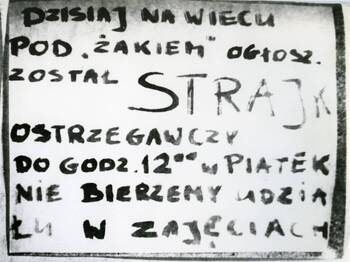 DZISIAJ NA WIECU
POD „ŻAKIEM" OGŁOSZ.
ZOSTAŁ STRAJK
OSTRZEGAWCZY
DO GODZ. 12⁰⁰ W PIĄTEK
NIE BIERZEMY UDZIA
ŁU W ZAJĘCIACH